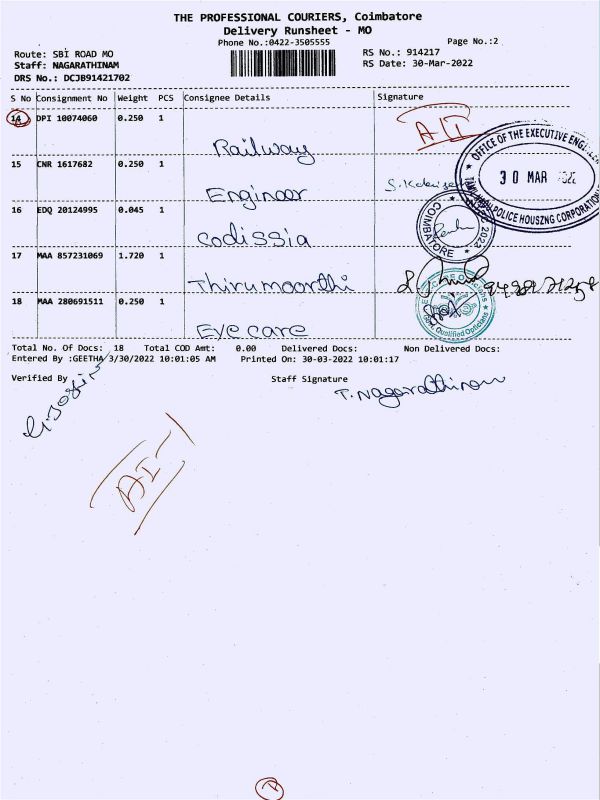 THE PROFESSIONAL COURIERS, Coimbatore
Delivery Runsheet - MO
Phone No.:0422-3505555
Page No.:2
Route: SBI ROAD MO
RS No.: 914217
Staff: NAGARATHINAM
RS Date: 30-Mar-2022
DRS No.: DCJB91421702
S No Consignment No Weight PCS Consignee Details Signature
14 DPI 10074060 0.250 1
Railway
15 CNR 1617682 0.250 1
Engineer
16 EDQ 20124995 0.045 1
Codissia
17 MAA 857231069 1.720 1
Thirumoorthi
18 MAA 280691511 0.250 1
Eye care
OFFICE OF THE EXECUTIVE
30 MAR
POLICE HOUSZNG CORPORATION
COIMBATORE
Qualified Opticians
Total No. Of Docs: 18 Total COD Amt: 0.00 Delivered Docs: Non Delivered Docs:
Entered By :GEETHA 3/30/2022 10:01:05 AM Printed On: 30-03-2022 10:01:17
Verified By
Staff Signature
T. Nagarathinam